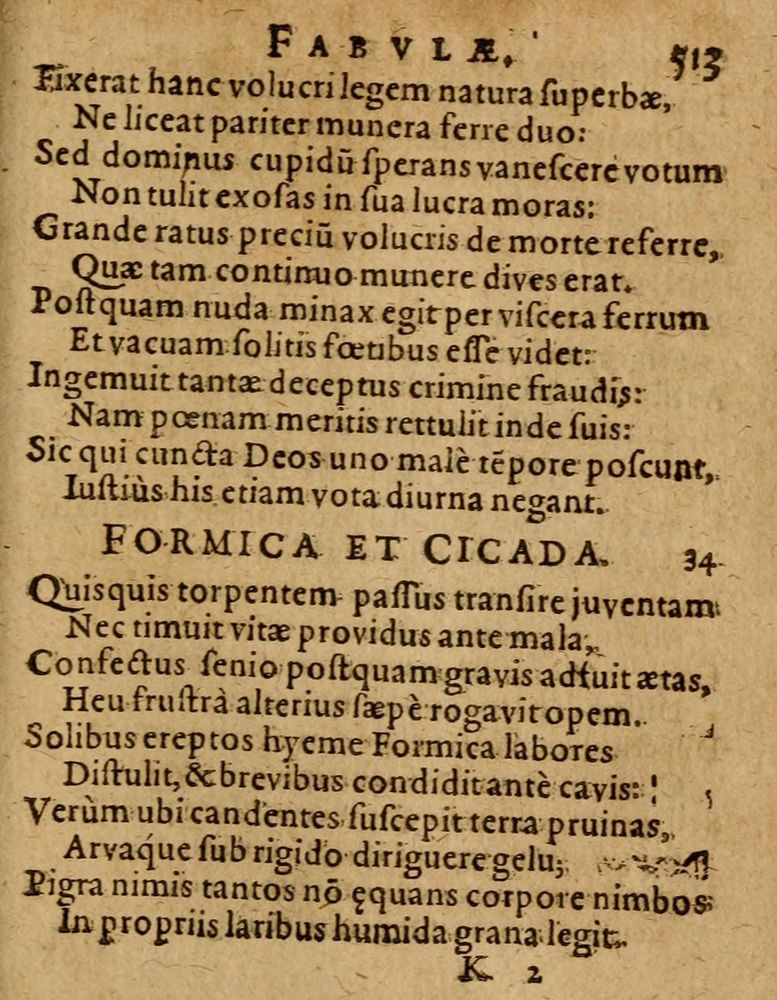 FABVLÆ. 513
Fixerat hanc volucri legem natura ſuperbæ,
Ne liceat pariter munera ferre duo:
Sed dominus cupidū ſperans vaneſcere votum
Non tulit exoſas in ſua lucra moras:
Grande ratus preciū volucris de morte referre,
Quæ tam continuo munere dives erat.
Poſtquam nuda minax egit per viſcera ferrum
Et vacuam ſolitis fœtibus eſſe videt:
Ingemuit tantæ deceptus crimine fraudis:
Nam pœnam meritis rettulit inde ſuis:
Sic qui cuncta Deos uno malè tēpore poſcunt,
Iuſtiùs his etiam vota diurna negant.
FORMICA ET CICADA. 34
Quisquis torpentem paſſus tranſire juventam
Nec timuit vitæ providus ante mala,
Confectus ſenio poſtquam gravis adfuit ætas,
Heu fruſtrà alterius ſæpè rogavit opem.
Solibus ereptos hyeme Formica labores
Diſtulit, & brevibus condidit antè cavis:
Verùm ubi candentes ſuſcepit terra pruinas,
Arvaq́ue ſub rigido diriguere gelu;
Pigra nimis tantos nō ęquans corpore nimbos
In propriis laribus humida grana legit.
K 2